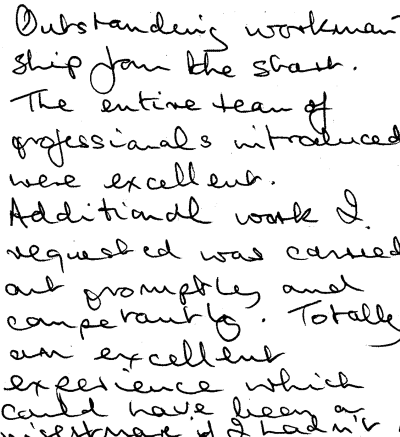 Outstanding workman
ship from the start.
The entire team of
professionals introduced
were excellent.
Additional work I
requested was carried
out promptly and
competantly. Totally
an excellent
experience which
could have been a
nightmare if I hadn't